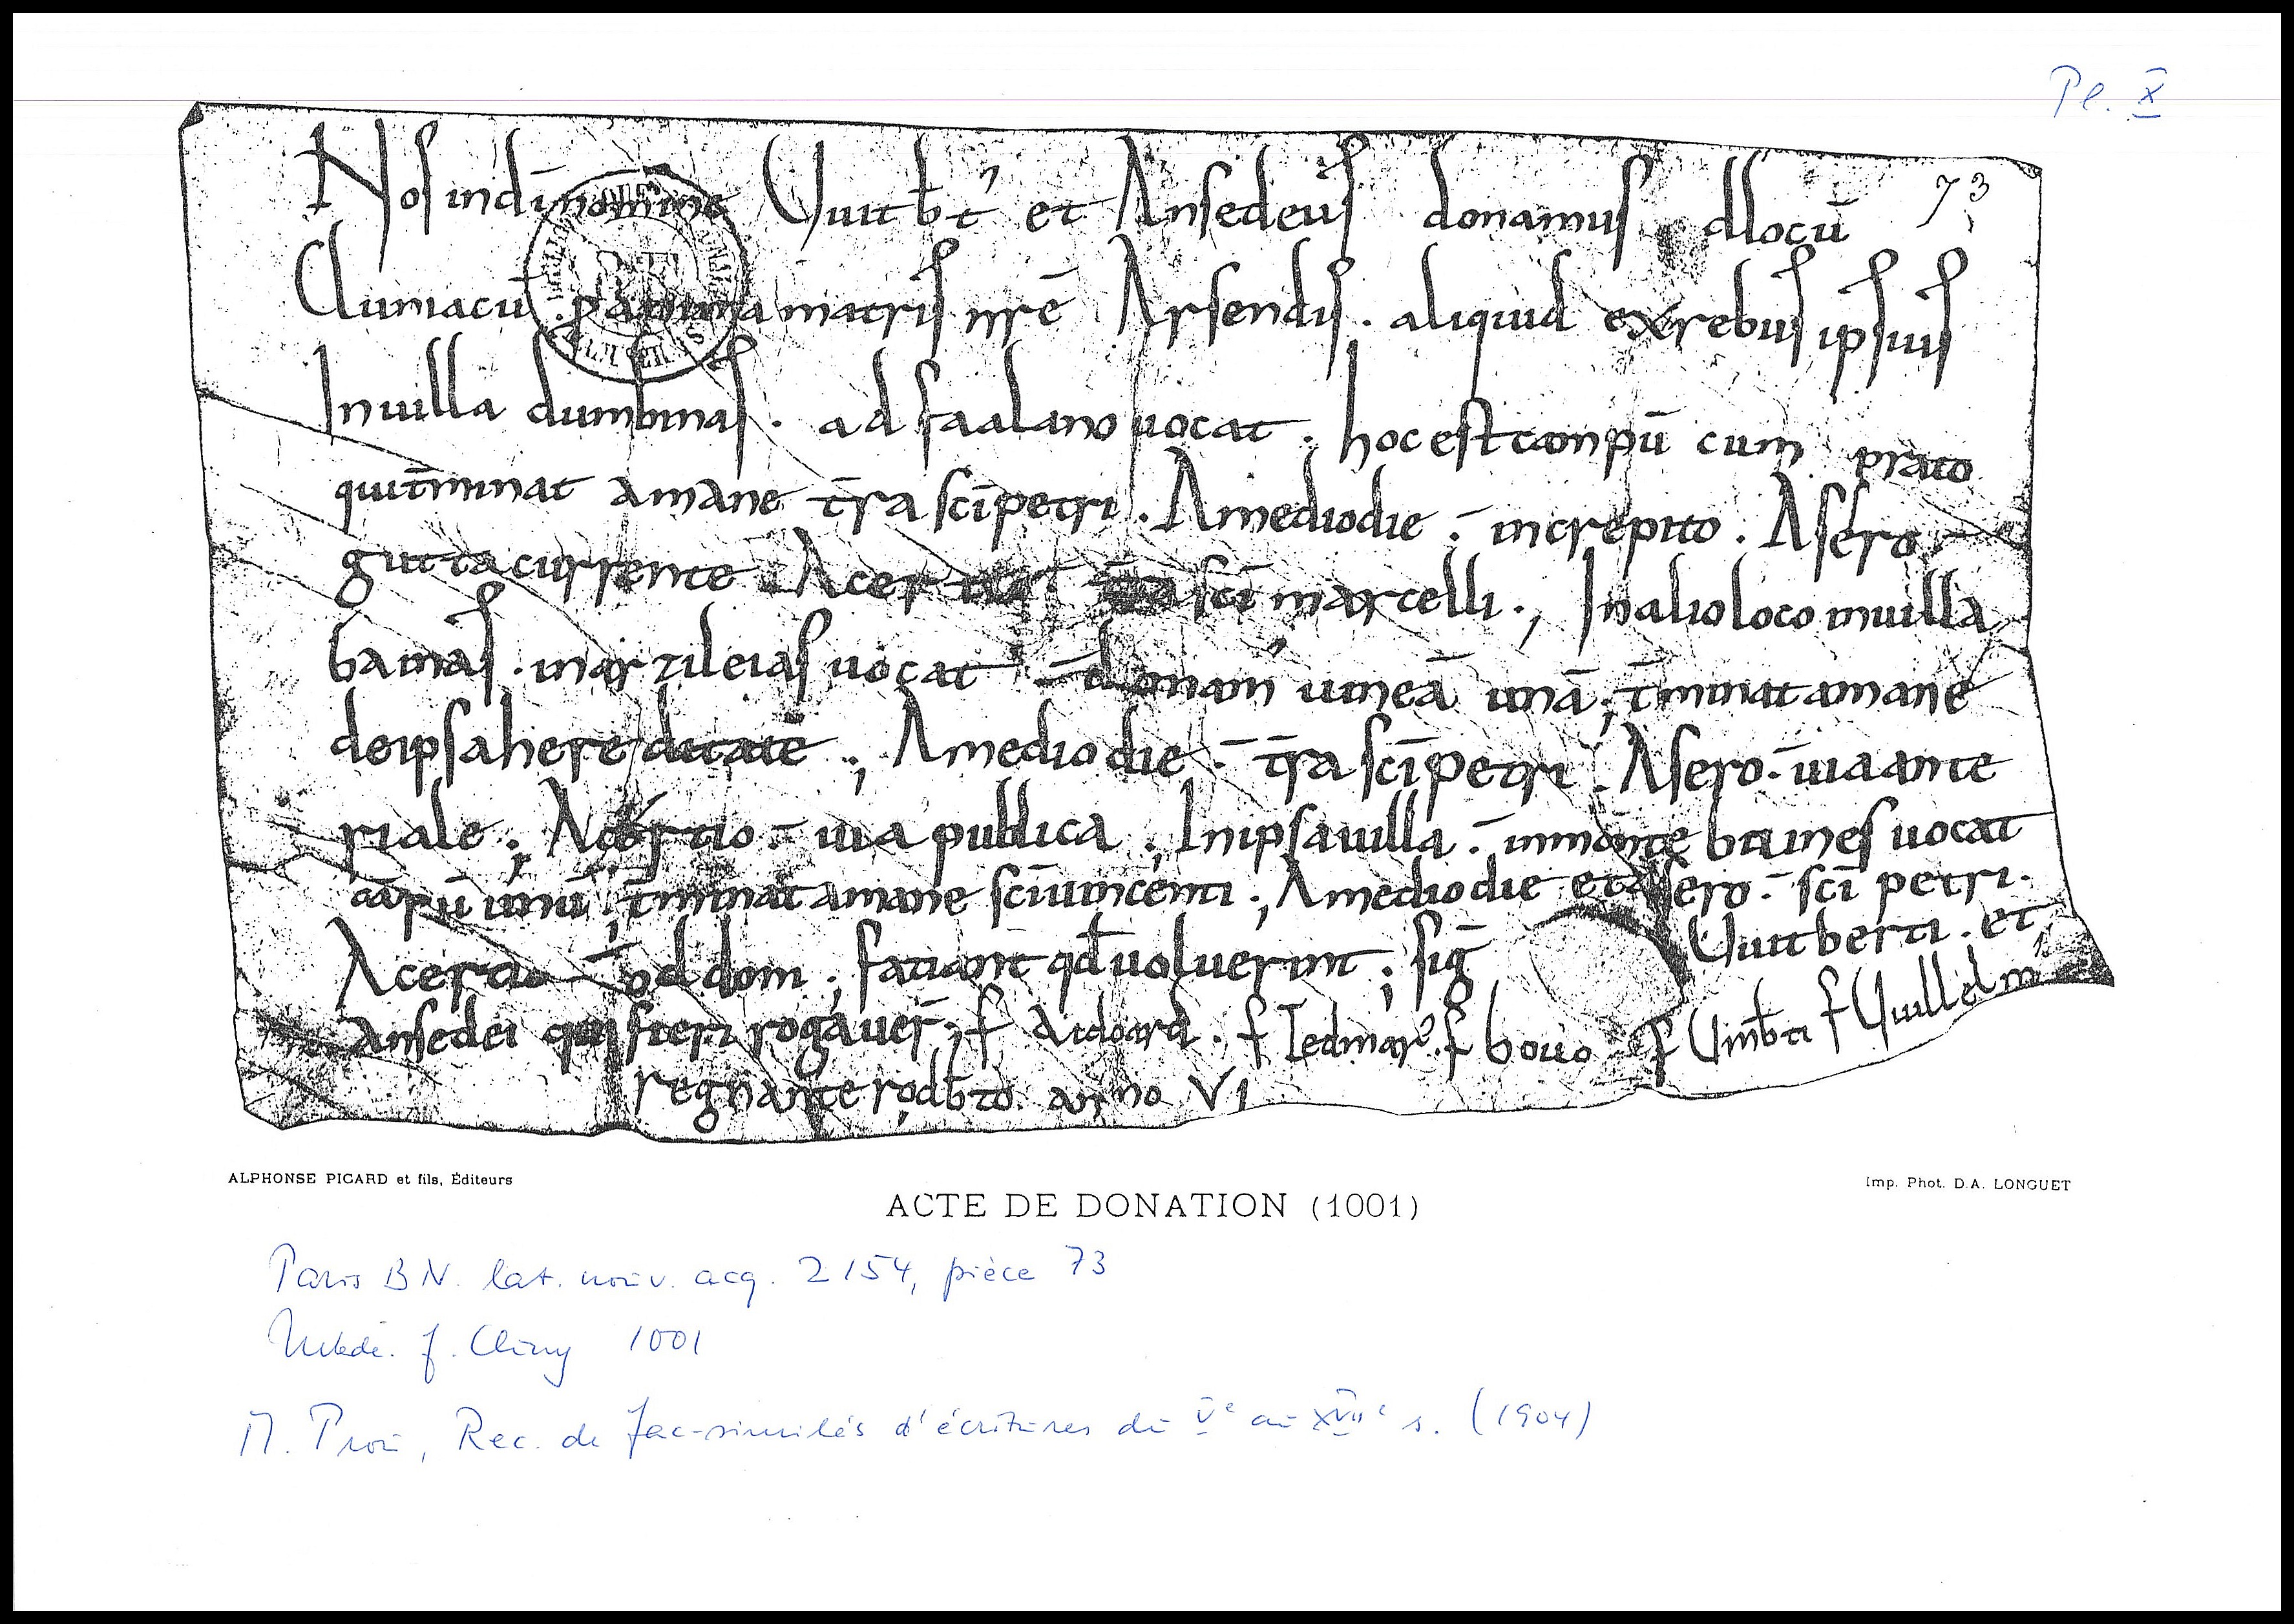 Pl. X
73
Nos in dī nomine Uuitbt' et Ansedeus donamus ad locū
Cluniacū . p anima matris nr̄e Arsendis . aliquid ex rebus ipsius
In uilla dumbinas . ad faalano uocat . hoc est canpū cum prato
qui t̄minat a mane t̄ra sc̄i petri . A mediodie . in crepito . A sero
gutta currente A cer t̄ra sc̄i marcelli ., In alio loco in uilla
bainas . in artileias uocat donam' uineā unā ., t̄minat a mane
de ipsa hereditatē ., A mediodie . t̄ra sc̄i petri . A sero . uia ante
riale ., A certio . uia publica ., In ipsa uilla . in monte bruines uocat
cāpū unū ., t̄minat a mane sc̄i uincenti ., A mediodie et a sero . sc̄i petri .
A certio od dom ., fatiant qd uoluerint ., sig̅ Uuitberti . et
Ansedei qui fieri rogauer̄ ., f Aidoard . f Iedmar . f bouo f Umbti f Uuillelm'
regnante rodbto . anno VI
ALPHONSE PICARD et fils, Éditeurs
Imp. Phot. D.A. LONGUET
ACTE DE DONATION (1001)
Paris B N. lat. nouv. acq. 2154, pièce 73
Urkde. f. Cluny 1001
M. Prou, Rec. de fac-similés d'écritures du Ve au XVIIe s. (1904)